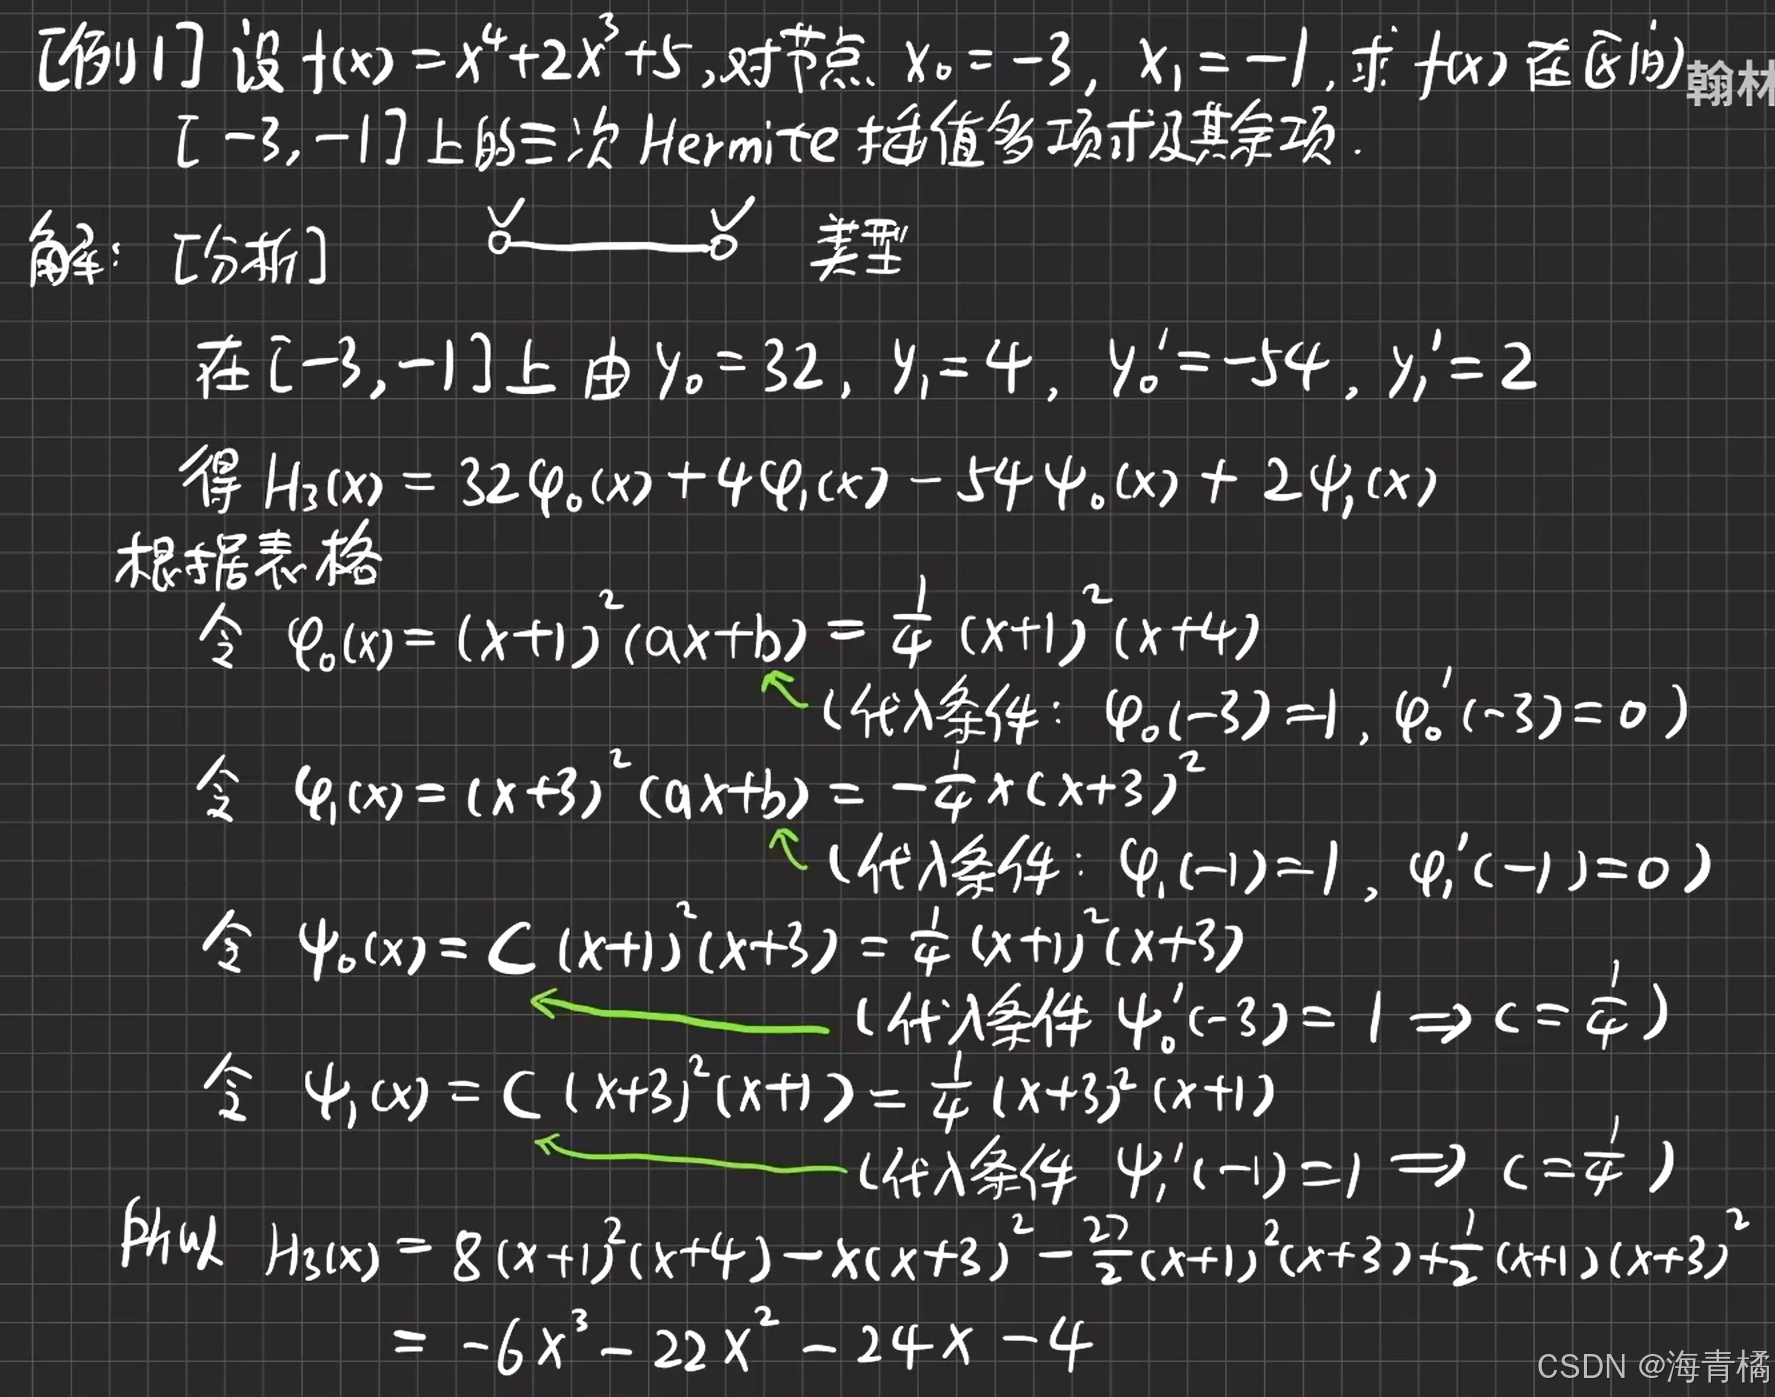 [例1] 设 f(x) = x⁴+2x³+5,对节点 x₀ = -3, x₁ = -1,求 f(x) 在区间
翰林
[-3,-1]上的三次Hermite插值多项式及其余项.
解: [分析] 类型
在[-3,-1]上 由 y₀=32, y₁=4, y₀'=-54, y₁'=2
得 H₃(x) = 32φ₀(x)+4φ₁(x)-54ψ₀(x)+2ψ₁(x)
根据表格
令 φ₀(x)= (x+1)²(ax+b) = 1/4 (x+1)²(x+4)
(代入条件: φ₀(-3)=1, φ₀'(-3)=0)
令 φ₁(x)= (x+3)²(ax+b) = -1/4 x(x+3)²
(代入条件: φ₁(-1)=1, φ₁'(-1)=0)
令 ψ₀(x)= C (x+1)²(x+3) = 1/4 (x+1)²(x+3)
(代入条件 ψ₀'(-3)= 1 ⇒ c = 1/4)
令 ψ₁(x) = C (x+3)²(x+1) = 1/4 (x+3)²(x+1)
(代入条件 ψ₁'(-1)=1 ⇒ c=1/4)
所以 H₃(x) = 8(x+1)²(x+4)-x(x+3)²-27/2(x+1)²(x+3)+1/2(x+1)(x+3)²
= -6x³-22x²-24x-4
CSDN @海青橘